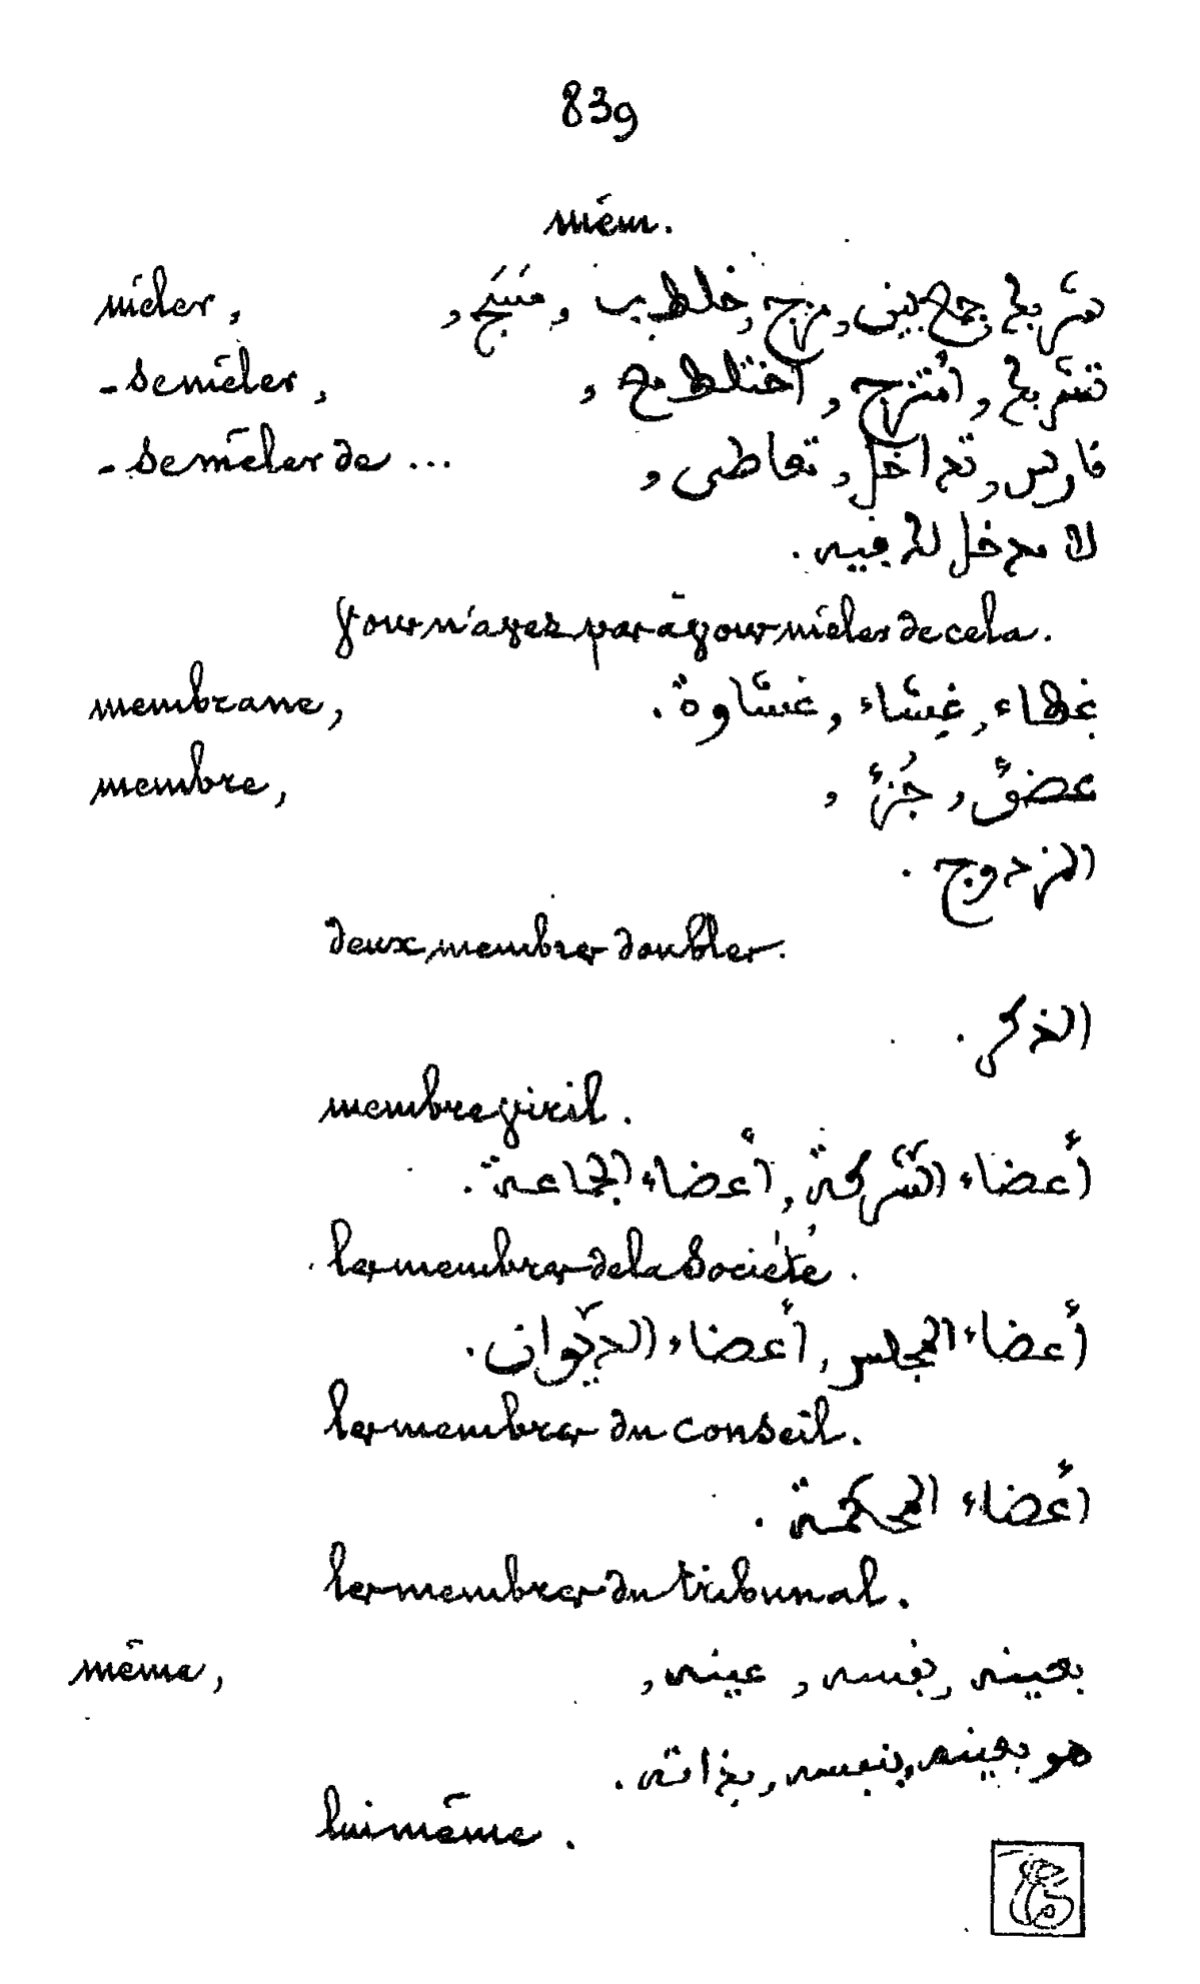 839
mêm.
mêler, شربك, جمع بين, مزج, خلط ب, مشج,
- se mêler, تشربك, امتزج, اختلط مع,
- se mêler de ... مارس, تداخل, تعاطى,
لا مدخل لك فيه.
vous n'avez pas à vous mêler de cela.
membrane, غطاء, غشاء, غشاوة.
membre, عضؤ, جُزء,
المزدوج.
deux membres doubles.
الذكر.
membre viril.
أعضاء الشركة, أعضاء الجماعة.
les membres de la Société.
أعضاء المجلس, أعضاء الديوان.
les membres du conseil.
أعضاء المحكمة.
les membres du tribunal.
même, بعينه, نفسه, عينه,
هو بعينه, بنفسه, بذاته.
lui même.